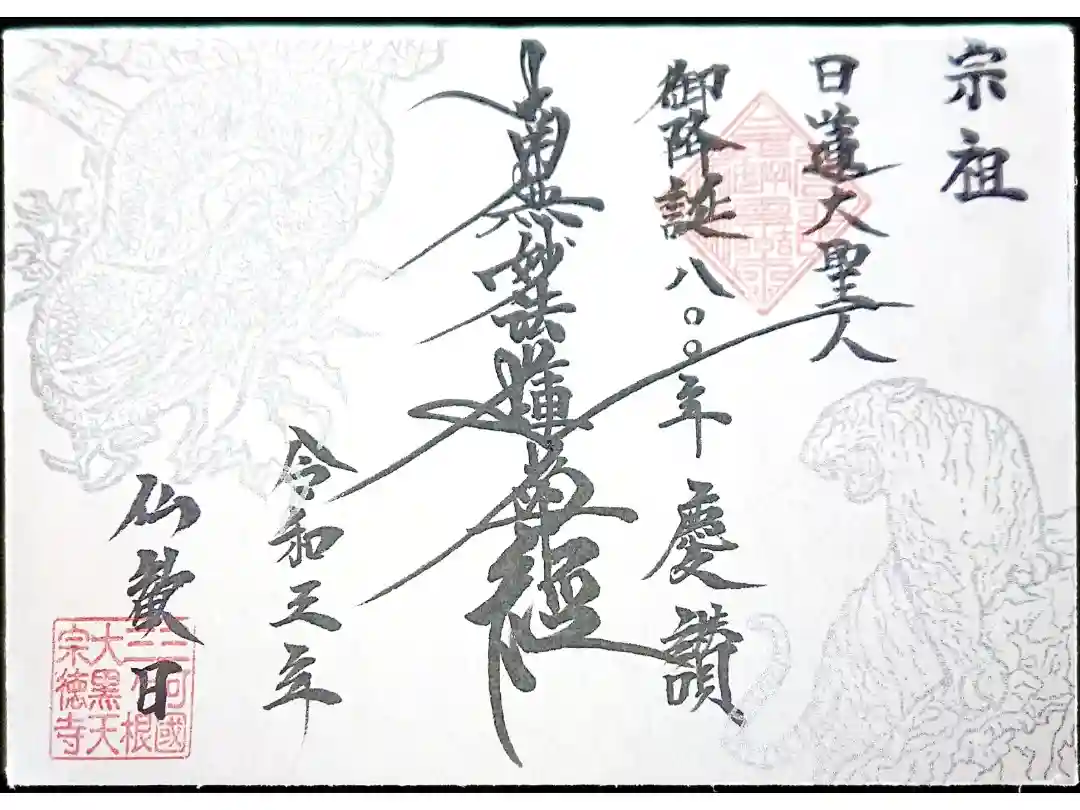 宗祖
日蓮大聖人
御降誕八〇〇年慶讃
南無妙法蓮華経
令和三年
仏歓日
三河國
大黒天
宗徳寺